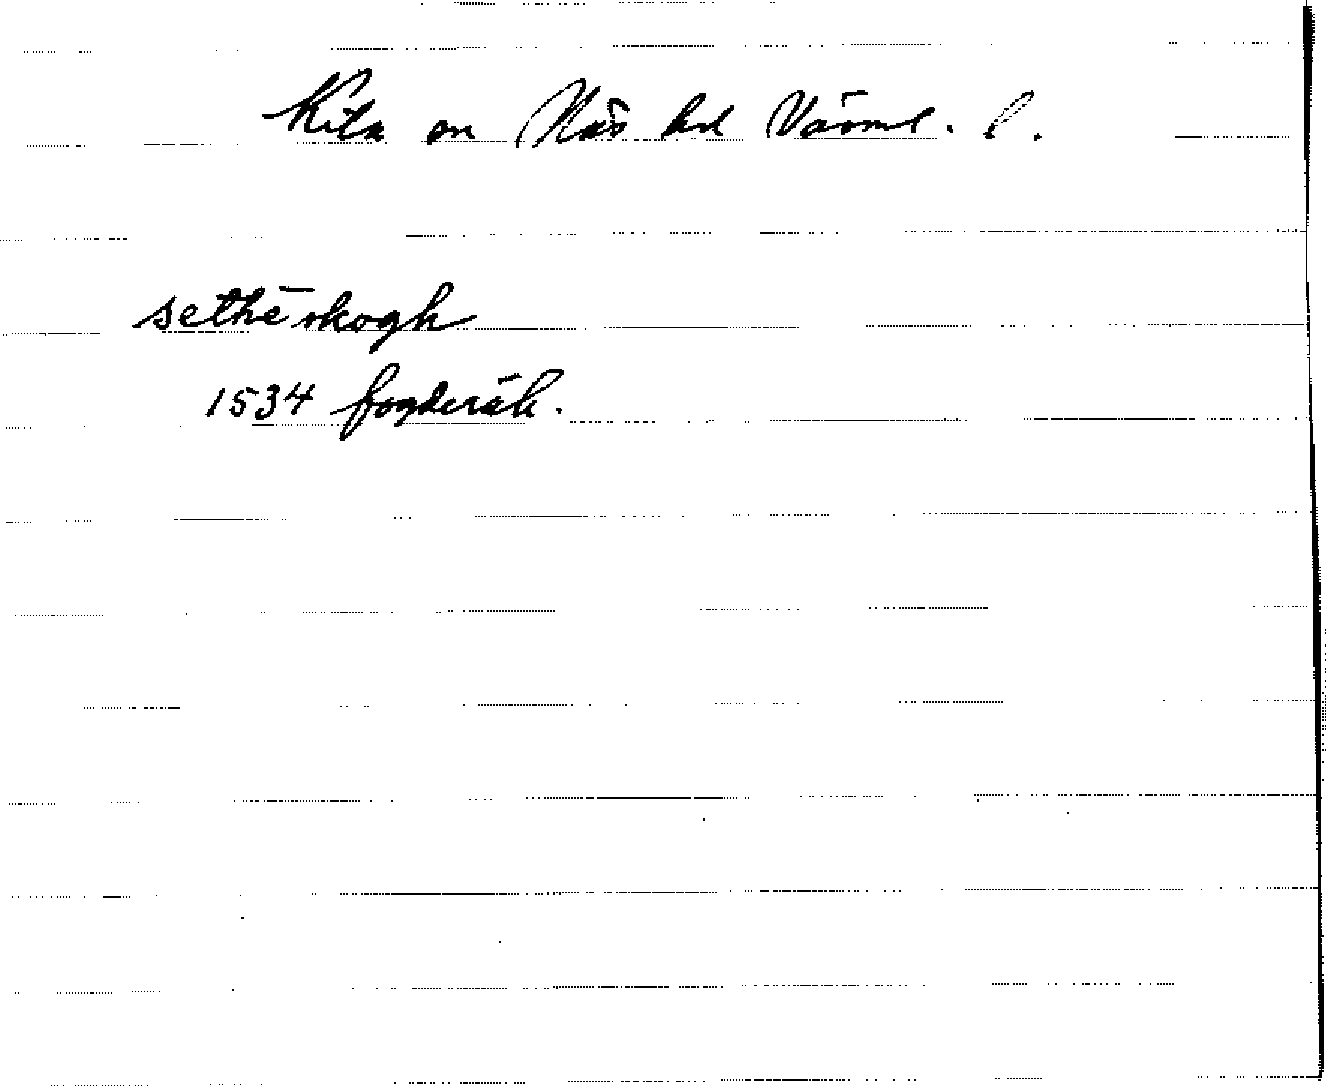 Kila sn Näs hd Värml. l.
sethē skogh
1534 fogderäk.